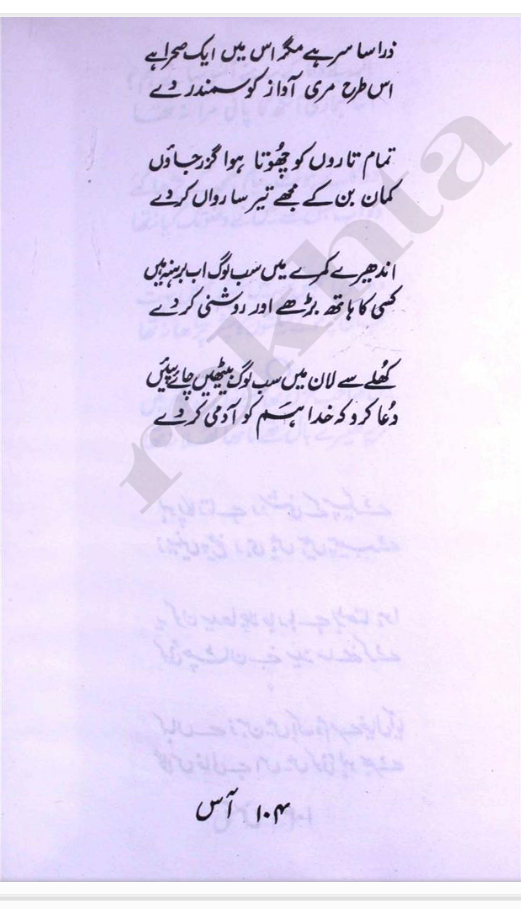 ذرا سا سر ہے مگر اس میں ایک صحرا ہے
اس طرح مری آواز کو سمندر دے
تمام تاروں کو چھُوتا ہوا گزر جاؤں
کمان بن کے مجھے تیر سا رواں کر دے
اندھیرے کمرے میں سب لوگ اب برہنہ ہیں
کسی کا ہاتھ بڑھے اور روشنی کر دے
کھُلے سے لان میں سب لوگ بیٹھیں چائے پیئیں
دُعا کرو کہ خدا ہم کو آدمی کر دے
rekhta
۱۰۴ آس